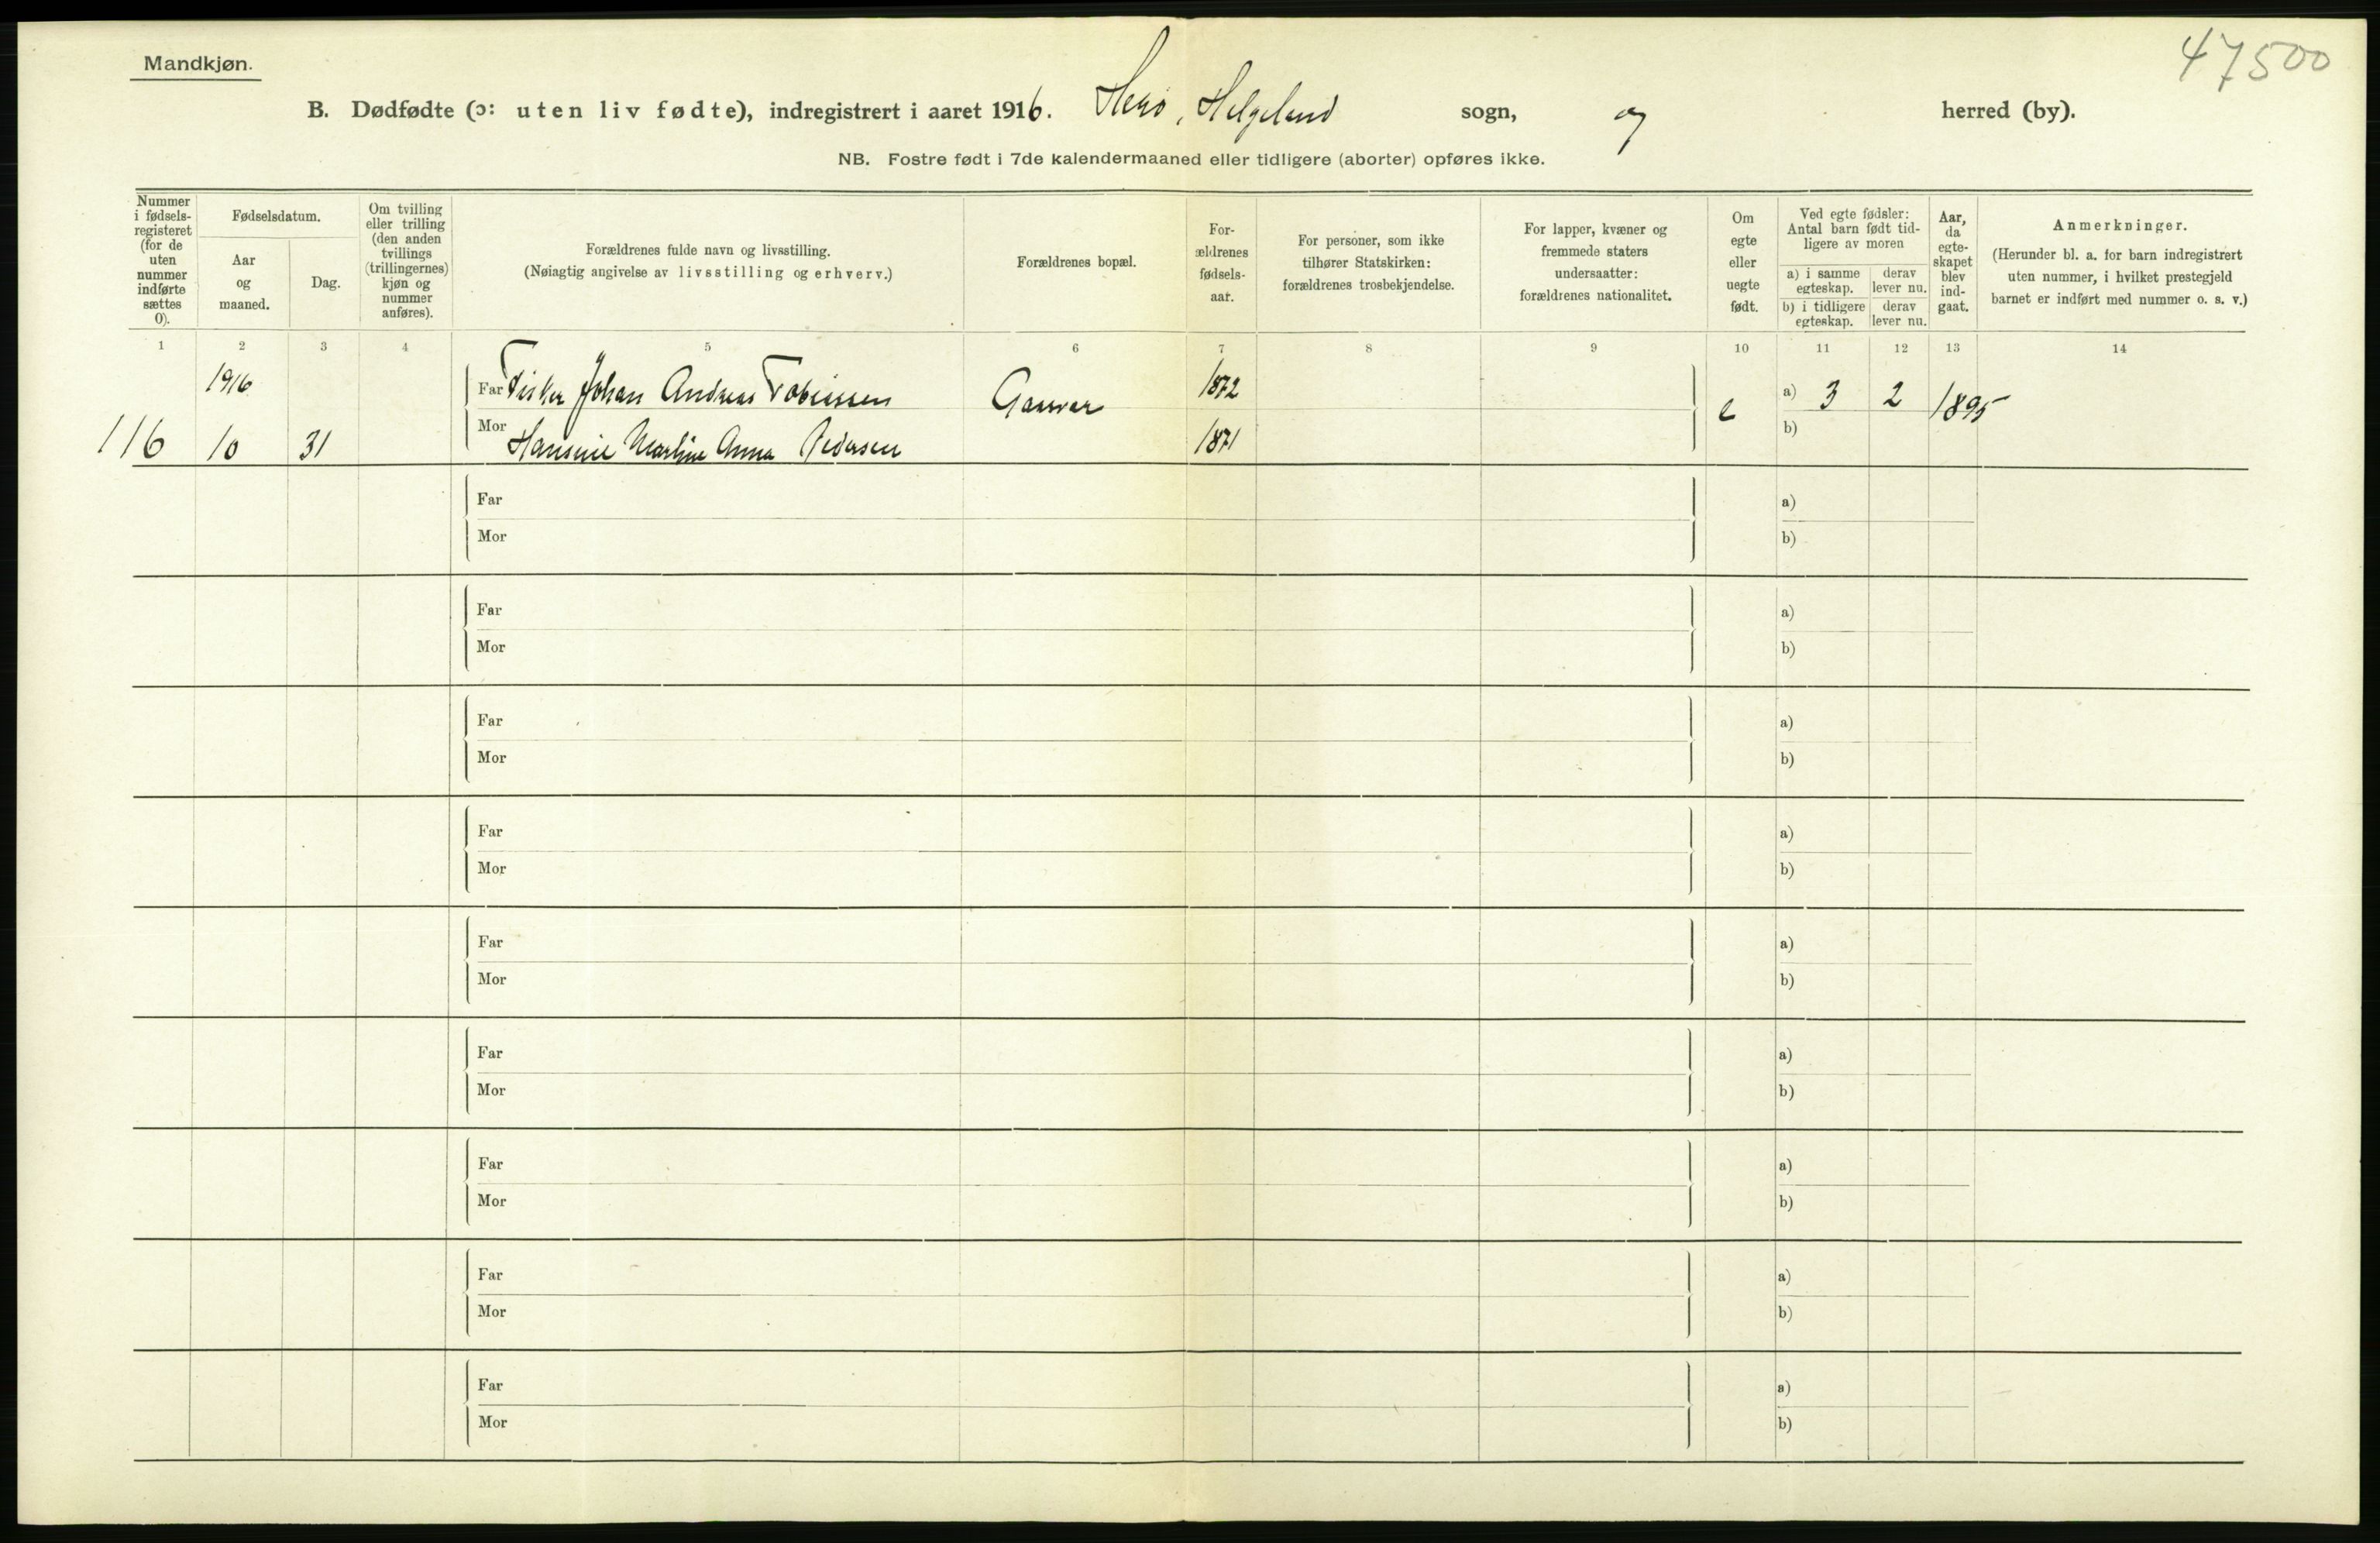 Mandkjøn.
47500
B. Dødfødte (ɔ: uten liv fødte), indregistrert i aaret 1916. Herö, Helgeland sogn, og herred (by).
NB. Fostre født i 7de kalendermaaned eller tidligere (aborter) opføres ikke.
Nummer i fødsels-registeret (for de uten nummer indførte sættes 0).
Fødselsdatum.
Aar og maaned.
Dag.
Om tvilling eller trilling (den anden tvillings (trillingernes) kjøn og nummer anføres).
Forældrenes fulde navn og livsstilling.
(Nøiagtig angivelse av livsstilling og erhverv.)
Forældrenes bopæl.
For-ældrenes fødsels-aar.
For personer, som ikke tilhører Statskirken: forældrenes trosbekjendelse.
For lapper, kvæner og fremmede staters undersaatter: forældrenes nationalitet.
Om egte eller uegte født.
Ved egte fødsler: Antal barn født tid-ligere av moren
a) i samme egteskap.
derav lever nu.
b) i tidligere egteskap.
derav lever nu.
Aar, da egte-skapet blev ind-gaat.
Anmerkninger.
(Herunder bl. a. for barn indregistrert uten nummer, i hvilket prestegjeld barnet er indført med nummer o. s. v.)
1 2 3 4 5 6 7 8 9 10 11 12 13 14
1916 Far Fisker Johan Andreas Tobiassen Gaasvær 1872 e a) 3 2 1895
116 10 31 Mor Hansine Martine Anna Pedersen 1871 b)
Far a)
Mor b)
Far a)
Mor b)
Far a)
Mor b)
Far a)
Mor b)
Far a)
Mor b)
Far a)
Mor b)
Far a)
Mor b)
Far a)
Mor b)
Far a)
Mor b)